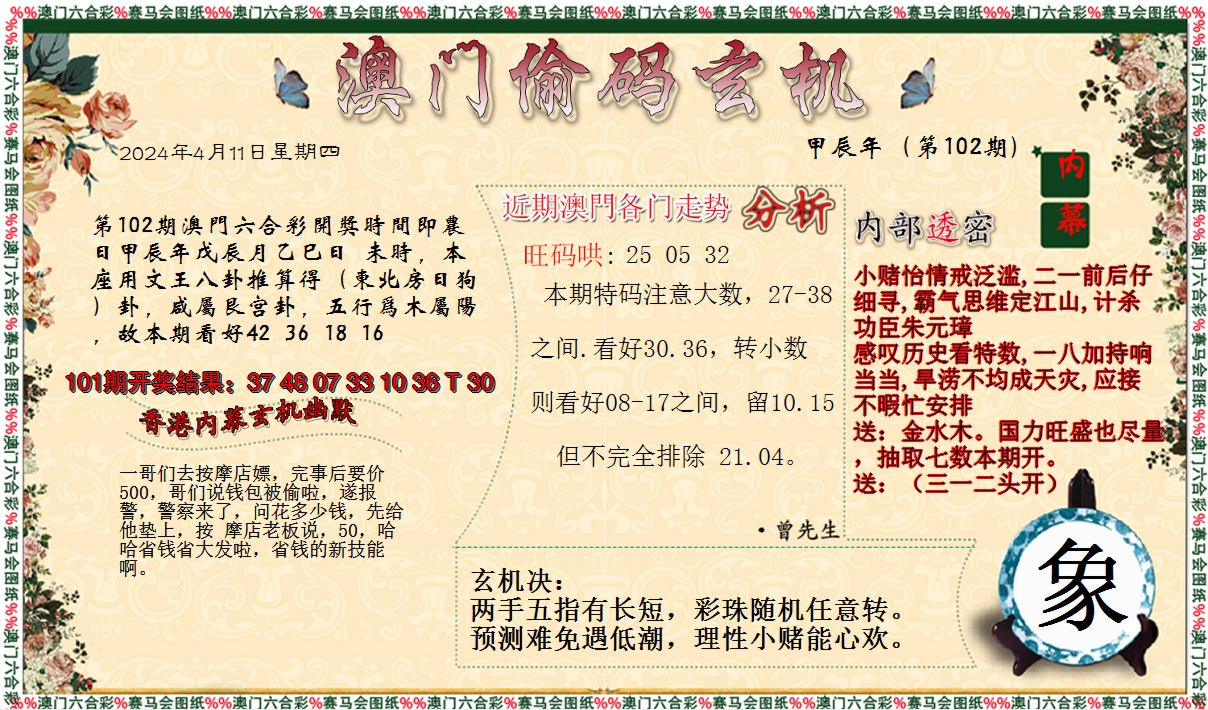 %%澳门六合彩%赛马会图纸%%澳门六合彩%赛马会图纸%%澳门六合彩%赛马会图纸%%澳门六合彩%赛马会图纸%%澳门六合彩%赛马会图纸%%澳门六合彩%赛马会图纸%%
澳门偷码玄机
2024年4月11日星期四
甲辰年（第102期）
内幕
第102期澳門六合彩開獎時間即農
日甲辰年戊辰月乙巳日 未時，本
座用文王八卦推算得（東北房日狗
）卦，咸屬艮宫卦，五行爲木屬陽
，故本期看好42 36 18 16
101期开奖结果：37 48 07 33 10 36 T 30
香港内幕玄机幽默
一哥们去按摩店嫖，完事后要价
500，哥们说钱包被偷啦，遂报
警，警察来了，问花多少钱，先给
他垫上，按 摩店老板说，50，哈
哈省钱省大发啦，省钱的新技能
啊。
近期澳門各门走势 分析
旺码哄: 25 05 32
本期特码注意大数，27-38
之间.看好30.36，转小数
则看好08-17之间，留10.15
但不完全排除 21.04。
·曾先生
内部透密
小赌怡情戒泛滥,二一前后仔
细寻,霸气思维定江山,计杀
功臣朱元璋
感叹历史看特数,一八加持响
当当,旱涝不均成天灾,应接
不暇忙安排
送：金水木。国力旺盛也尽量
，抽取七数本期开。
送：（三一二头开）
玄机决：
两手五指有长短，彩珠随机任意转。
预测难免遇低潮，理性小赌能心欢。
象
%%澳门六合彩%赛马会图纸%%澳门六合彩%赛马会图纸%%澳门六合彩%赛马会图纸%%澳门六合彩%赛马会图纸%%澳门六合彩%赛马会图纸%%澳门六合彩%赛马会图纸%%